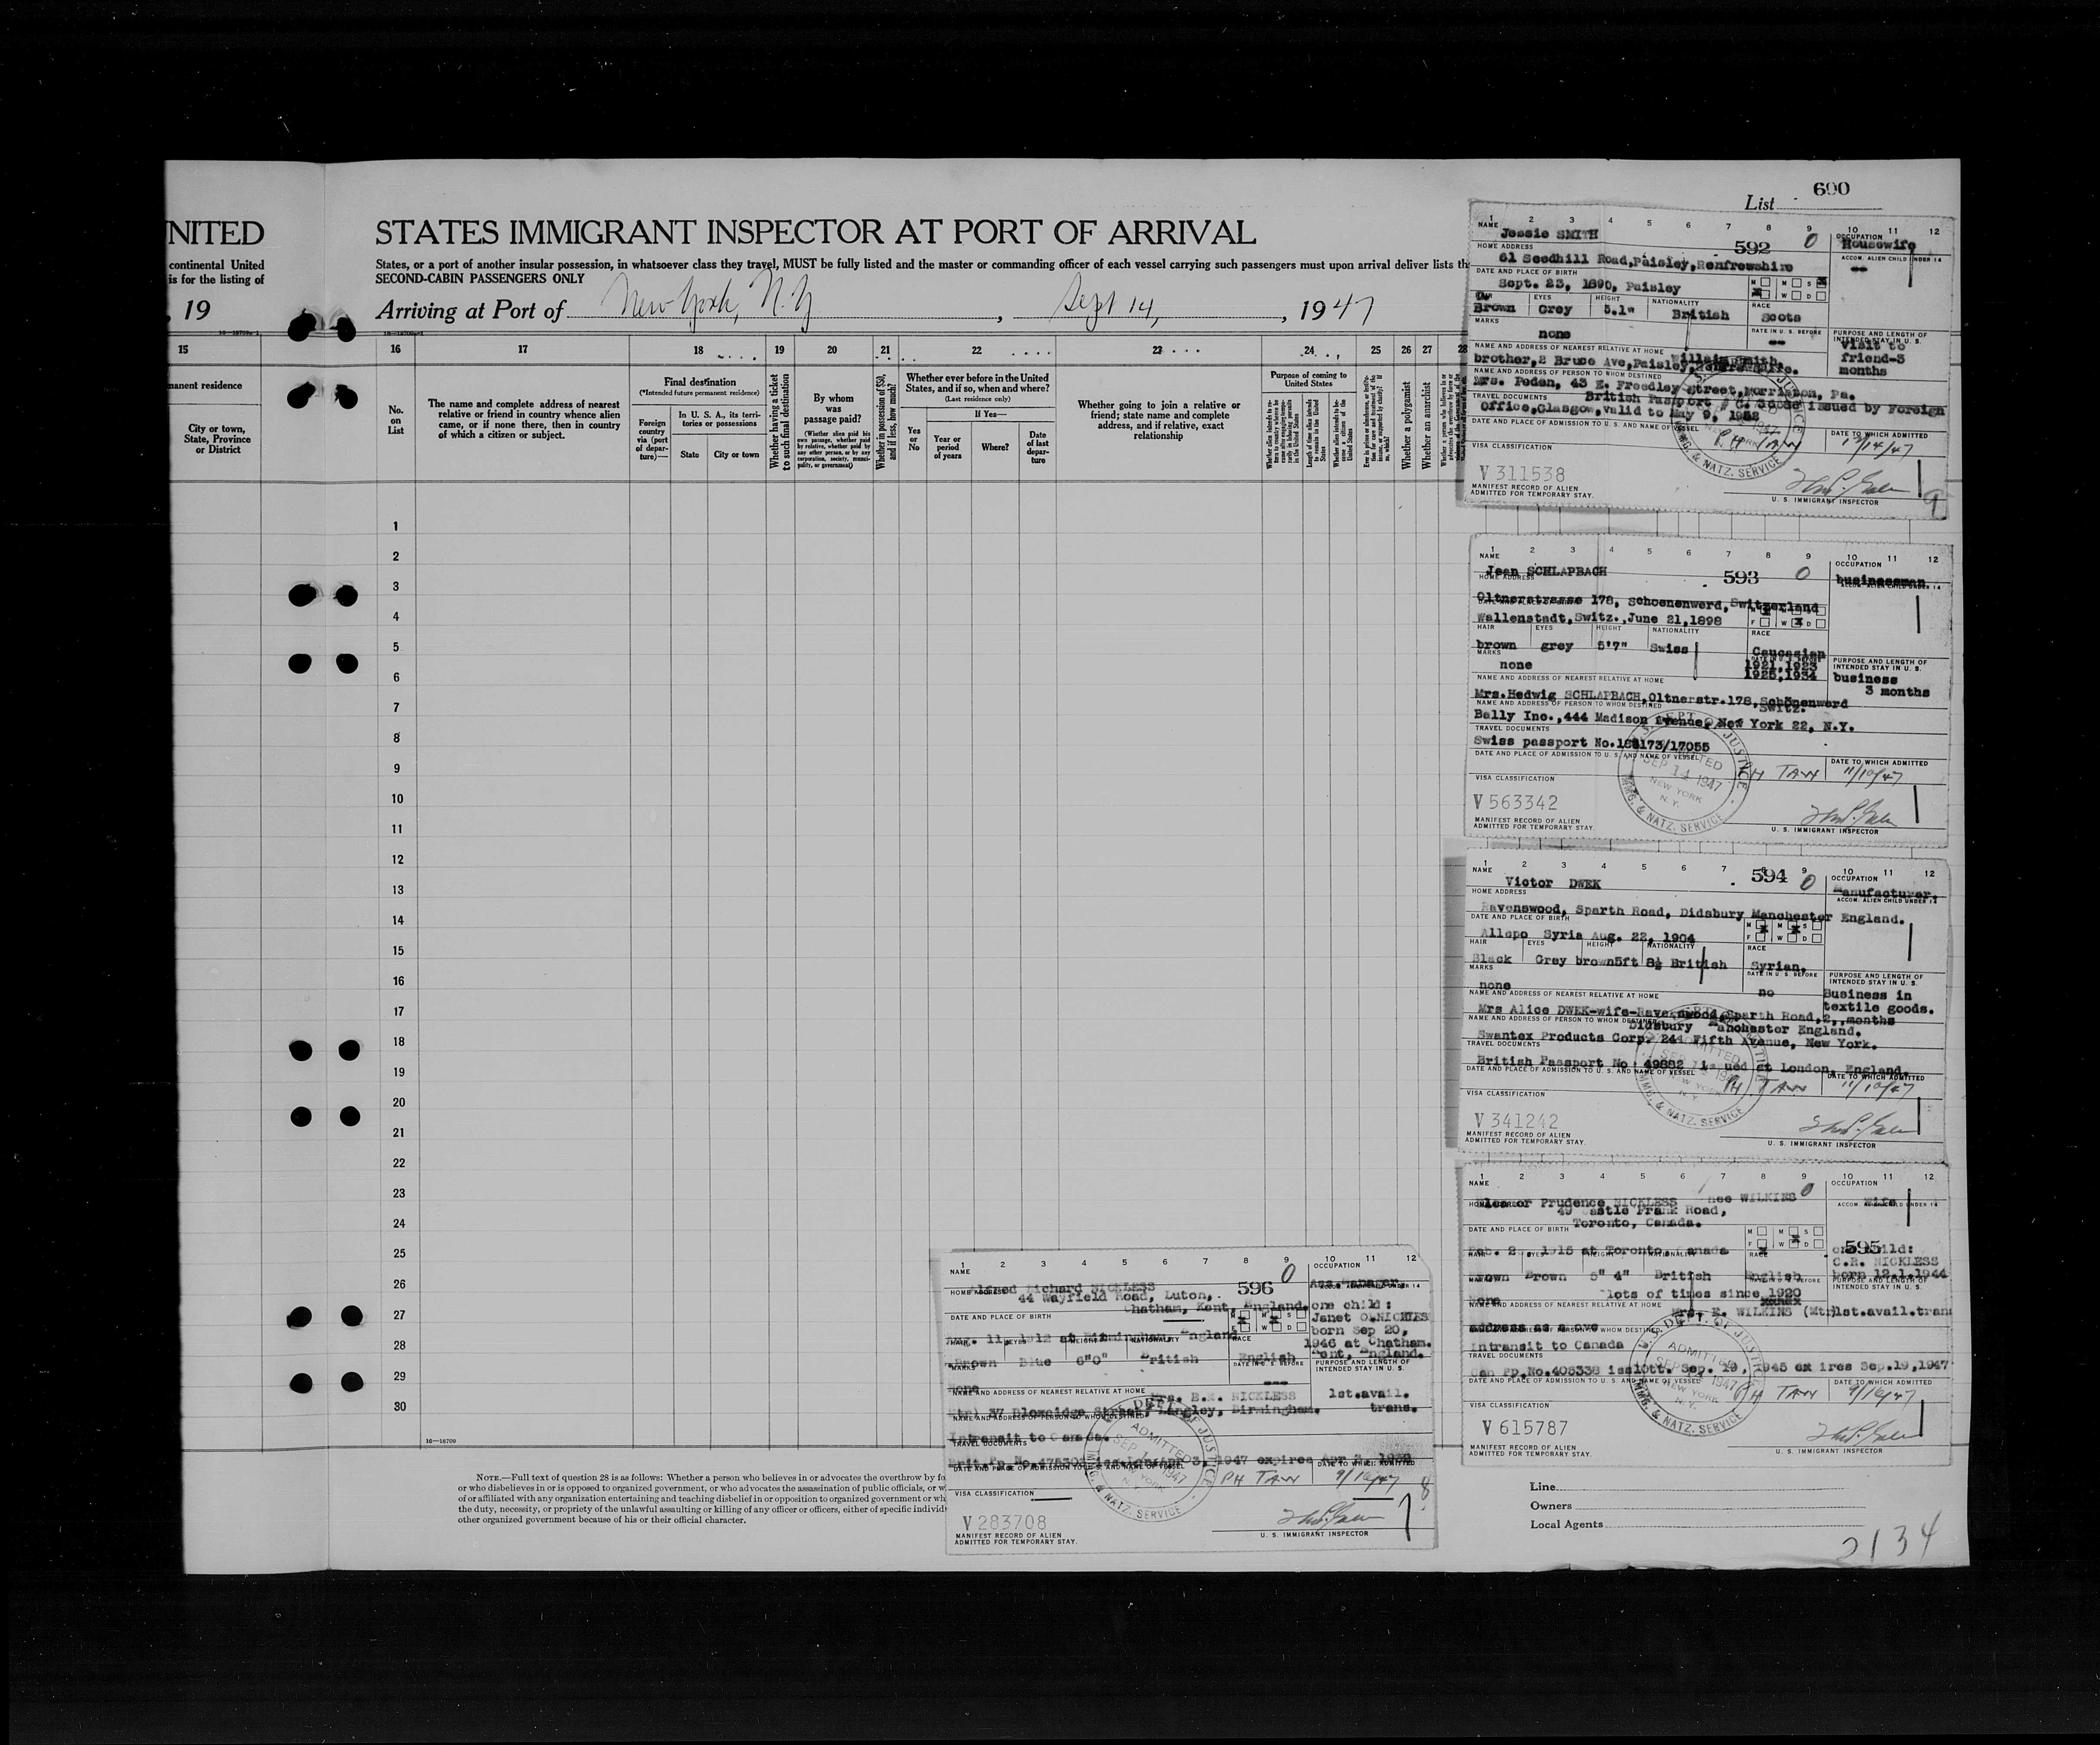 690
List
NITED
STATES IMMIGRANT INSPECTOR AT PORT OF ARRIVAL
continental United
is for the listing of
States, or a port of another insular possession, in whatsoever class they travel, MUST be fully listed and the master or commanding officer of each vessel carrying such passengers must upon arrival deliver lists th
SECOND-CABIN PASSENGERS ONLY
, 19
Arriving at Port of New York, N.Y , Sept 14, , 1947
15 16 17 18 19 20 21 22 23 24 25 26 27 28
manent residence
City or town, State, Province or District
No. on List
The name and complete address of nearest relative or friend in country whence alien came, or if none there, then in country of which a citizen or subject.
Final destination
(*Intended future permanent residence)
Foreign country via (port of departure)—
In U. S. A., its territories or possessions
State
City or town
Whether having a ticket to such final destination
By whom was passage paid?
(Whether alien paid his own passage, whether paid by relative, whether paid by any other person, or by any corporation, society, municipality, or government)
Whether in possession of $50, and if less, how much?
Whether ever before in the United States, and if so, when and where?
(Last residence only)
Yes or No
If Yes—
Year or period of years
Where?
Date of last departure
Whether going to join a relative or friend; state name and complete address, and if relative, exact relationship
Purpose of coming to United States
Length of time alien intends to remain in the United States
Whether a polygamist
Whether an anarchist
1
2
3
4
5
6
7
8
9
10
11
12
13
14
15
16
17
18
19
20
21
22
23
24
25
26
27
28
29
30
16—18709
NOTE.—Full text of question 28 is as follows: Whether a person who believes in or advocates the overthrow by fo
or who disbelieves in or is opposed to organized government, or who advocates the assassination of public officials, or w
of or affiliated with any organization entertaining and teaching disbelief in or opposition to organized government or wh
the duty, necessity, or propriety of the unlawful assaulting or killing of any officer or officers, either of specific individ
other organized government because of his or their official character.
1 2 3 4 5 6 7 8 9 10 11 12
NAME Jessie SMITH 592 0
OCCUPATION Housewife
HOME ADDRESS
61 Seedhill Road,Paisley,Renfrewshire
ACCOM. ALIEN CHILD UNDER 14 --
DATE AND PLACE OF BIRTH
Sept. 23, 1890, Paisley
M M S X
F X W D
HAIR EYES HEIGHT NATIONALITY RACE
Brown Grey 5.1" British Scots
MARKS none
DATE IN U. S. BEFORE --
PURPOSE AND LENGTH OF INTENDED STAY IN U. S.
Visit to friend-3 months
NAME AND ADDRESS OF NEAREST RELATIVE AT HOME
brother,2 Bruce Ave,Paisley
NAME AND ADDRESS OF PERSON TO WHOM DESTINED
Mrs. Peden, 43 E. Freedley Street,Norriston, Pa.
TRAVEL DOCUMENTS British Passport issued by Foreign
Office,Glasgow,valid to May 9, 1952
DATE AND PLACE OF ADMISSION TO U. S. AND NAME OF VESSEL
P.H TAN
DATE TO WHICH ADMITTED
12/14/47
VISA CLASSIFICATION
V 311538
MANIFEST RECORD OF ALIEN ADMITTED FOR TEMPORARY STAY.
U. S. IMMIGRANT INSPECTOR
9
1 2 3 4 5 6 7 8 9 10 11 12
NAME Jean SCHLAPBACH 593 0
OCCUPATION businessman
HOME ADDRESS
Oltnerstrasse 178, Schoenenwerd,Switzerland
Wallenstadt,Switz.,June 21,1898
HAIR EYES HEIGHT NATIONALITY RACE
brown grey 5'7" Swiss Caucasian
MARKS none
1921,1923
1925,1934
PURPOSE AND LENGTH OF INTENDED STAY IN U. S.
business 3 months
NAME AND ADDRESS OF NEAREST RELATIVE AT HOME
Mrs.Hedwig SCHLAPBACH,Oltnerstr.178,Schönenwerd Switz.
NAME AND ADDRESS OF PERSON TO WHOM DESTINED
Bally Inc.,444 Madison Avenue, New York 22, N.Y.
TRAVEL DOCUMENTS
Swiss passport
DATE AND PLACE OF ADMISSION TO U. S. AND NAME OF VESSEL
DEPT OF JUSTICE ADMITTED SEP 14 1947 NEW YORK N.Y. IMMG. & NATZ. SERVICE
PH TAN
DATE TO WHICH ADMITTED
11/10/47
VISA CLASSIFICATION
V 563342
MANIFEST RECORD OF ALIEN ADMITTED FOR TEMPORARY STAY.
U. S. IMMIGRANT INSPECTOR
1 2 3 4 5 6 7 8 9 10 11 12
NAME Victor DWEK 594 0
OCCUPATION Manufacturer.
HOME ADDRESS
Ravenswood, Sparth Road, Didsbury Manchester England.
DATE AND PLACE OF BIRTH
Allepo Syria Aug. 22, 1904
HAIR EYES HEIGHT NATIONALITY RACE
Black Grey brown 5ft 8½ British Syrian.
MARKS none
DATE IN U. S. BEFORE no
PURPOSE AND LENGTH OF INTENDED STAY IN U. S.
Business in textile goods. 2,,months
NAME AND ADDRESS OF NEAREST RELATIVE AT HOME
Mrs Alice DWEK-wife-Ravenswood,Sparth Road,
Didsbury Manchester England.
NAME AND ADDRESS OF PERSON TO WHOM DESTINED
Swantex Products Corp. 244 Fifth Avenue, New York.
TRAVEL DOCUMENTS
British Passport No 49882 issued at London, England.
DATE AND PLACE OF ADMISSION TO U. S. AND NAME OF VESSEL
PH TAN
DATE TO WHICH ADMITTED
11/10/47
VISA CLASSIFICATION
V 341242
MANIFEST RECORD OF ALIEN ADMITTED FOR TEMPORARY STAY.
U. S. IMMIGRANT INSPECTOR
1 2 3 4 5 6 7 8 9 10 11 12
NAME
Eleanor Prudence NICKLESS nee WILKINS 0
OCCUPATION Wife
49 Castle Frank Road,
Toronto, Canada.
DATE AND PLACE OF BIRTH
1915 at Toronto, Canada
595
one child:
C.R. NICKLESS
born 12.1.1944
Brown Brown 5" 4" British English
None lots of times since 1920
NAME AND ADDRESS OF NEAREST RELATIVE AT HOME
Mrs. E. WILKINS (Mth) 1st.avail.trans
address as above
Intransit to Canada
TRAVEL DOCUMENTS
Can Pp.No.405338 iss Ott. Sep. 19, 1945 expires Sep.19,1947
DATE AND PLACE OF ADMISSION TO U. S. AND NAME OF VESSEL
PH TAN
DATE TO WHICH ADMITTED
9/16/47
VISA CLASSIFICATION
V 615787
MANIFEST RECORD OF ALIEN ADMITTED FOR TEMPORARY STAY.
U. S. IMMIGRANT INSPECTOR
1 2 3 4 5 6 7 8 9 10 11 12
NAME
Alfred Richard NICKLESS 596 0
OCCUPATION
44 Wayfield Road, Luton,
Chatham, Kent, England.
one child:
Janet
born Sep 20,
1946 at Chatham.
Kent, England.
DATE AND PLACE OF BIRTH
11, 1912 at Birmingham, England
Brown Blue 6"0" British English
None
DATE IN U. S. BEFORE ---
PURPOSE AND LENGTH OF INTENDED STAY IN U. S.
1st.avail. trans.
NAME AND ADDRESS OF NEAREST RELATIVE AT HOME
NICKLESS
Street, Langley, Birmingham.
Intransit to Canada.
TRAVEL DOCUMENTS
1947 expires
PH TAN
9/16/47
8
VISA CLASSIFICATION
V 283708
MANIFEST RECORD OF ALIEN ADMITTED FOR TEMPORARY STAY.
U. S. IMMIGRANT INSPECTOR
Line
Owners
Local Agents
2134